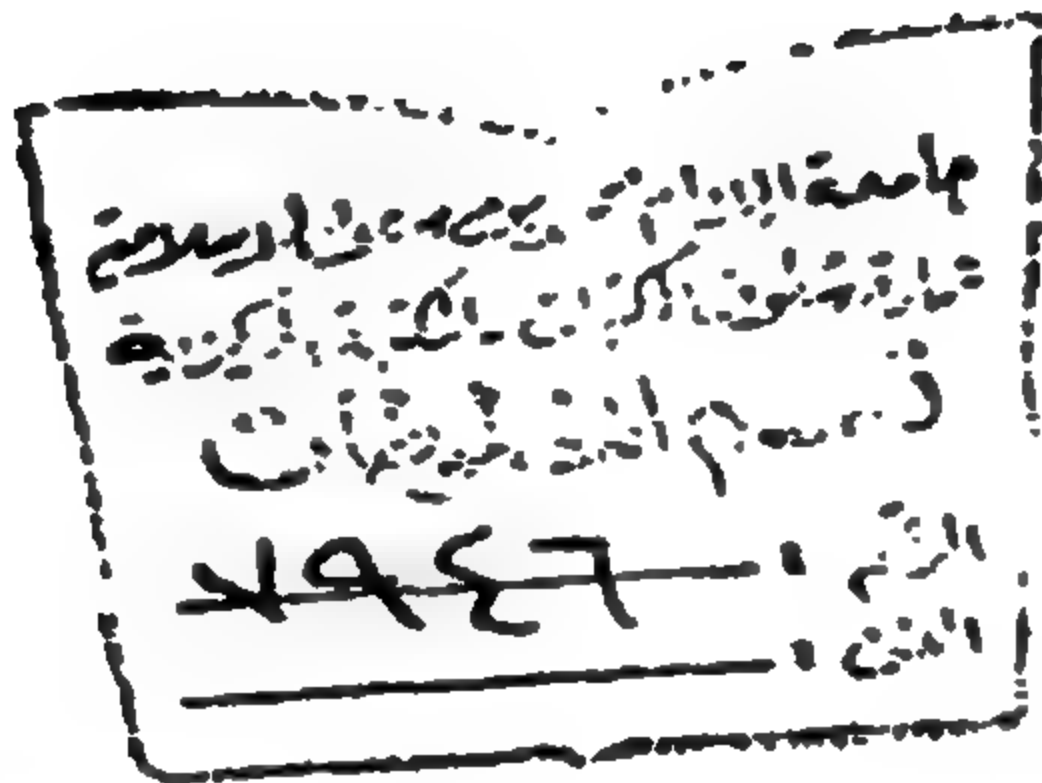 جامعة الإمام محمد بن سعود الإسلامية
عمادة شئون المكتبات - المكتبة المركزية
قسم المخطوطات
الرقم :
الفن :